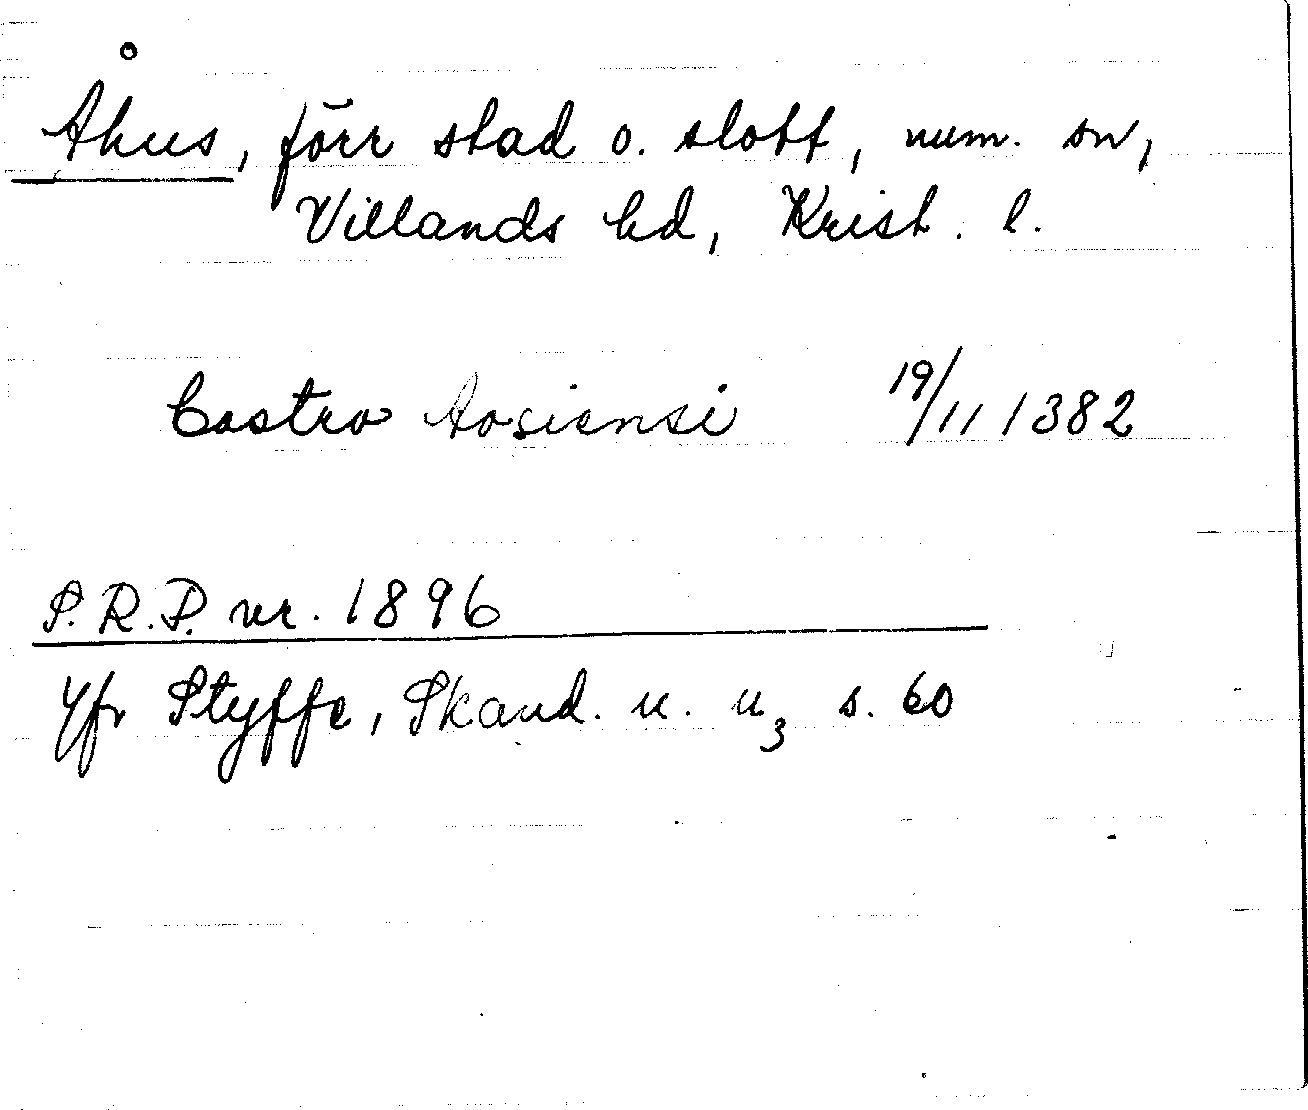 Åhus, förr stad o. slott, num. sn,
Villands hd, Krist. l.
Castro Aosiensi 19/11 1382
S.R.P. nr. 1896
Jfr Styffe, Skand. u. u₃ s. 60